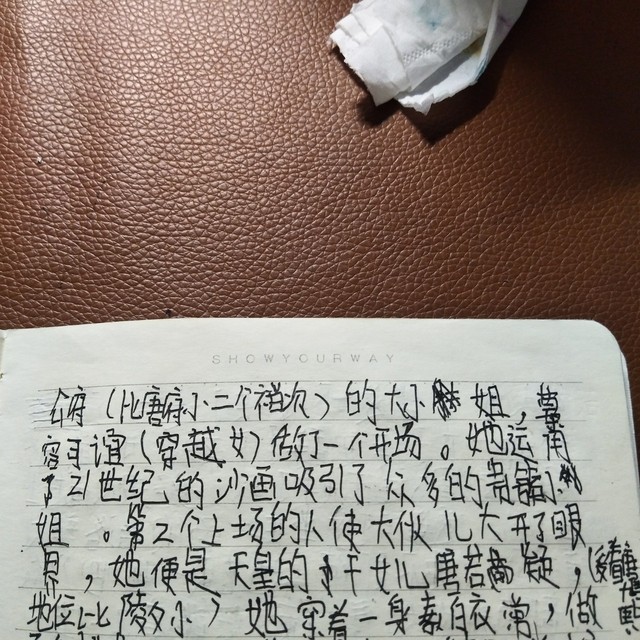 SHOWYOURWAY
府(比唐府小二个档次)的大小姐,
容可谊(穿越女)做了一个开场。她运用
了21世纪的沙画吸引了众多的贵
姐。第2个上场的人使大伙儿大开了眼
界,她便是天皇的干女儿唐若
地位比小)她穿着一身素白衣裳,做